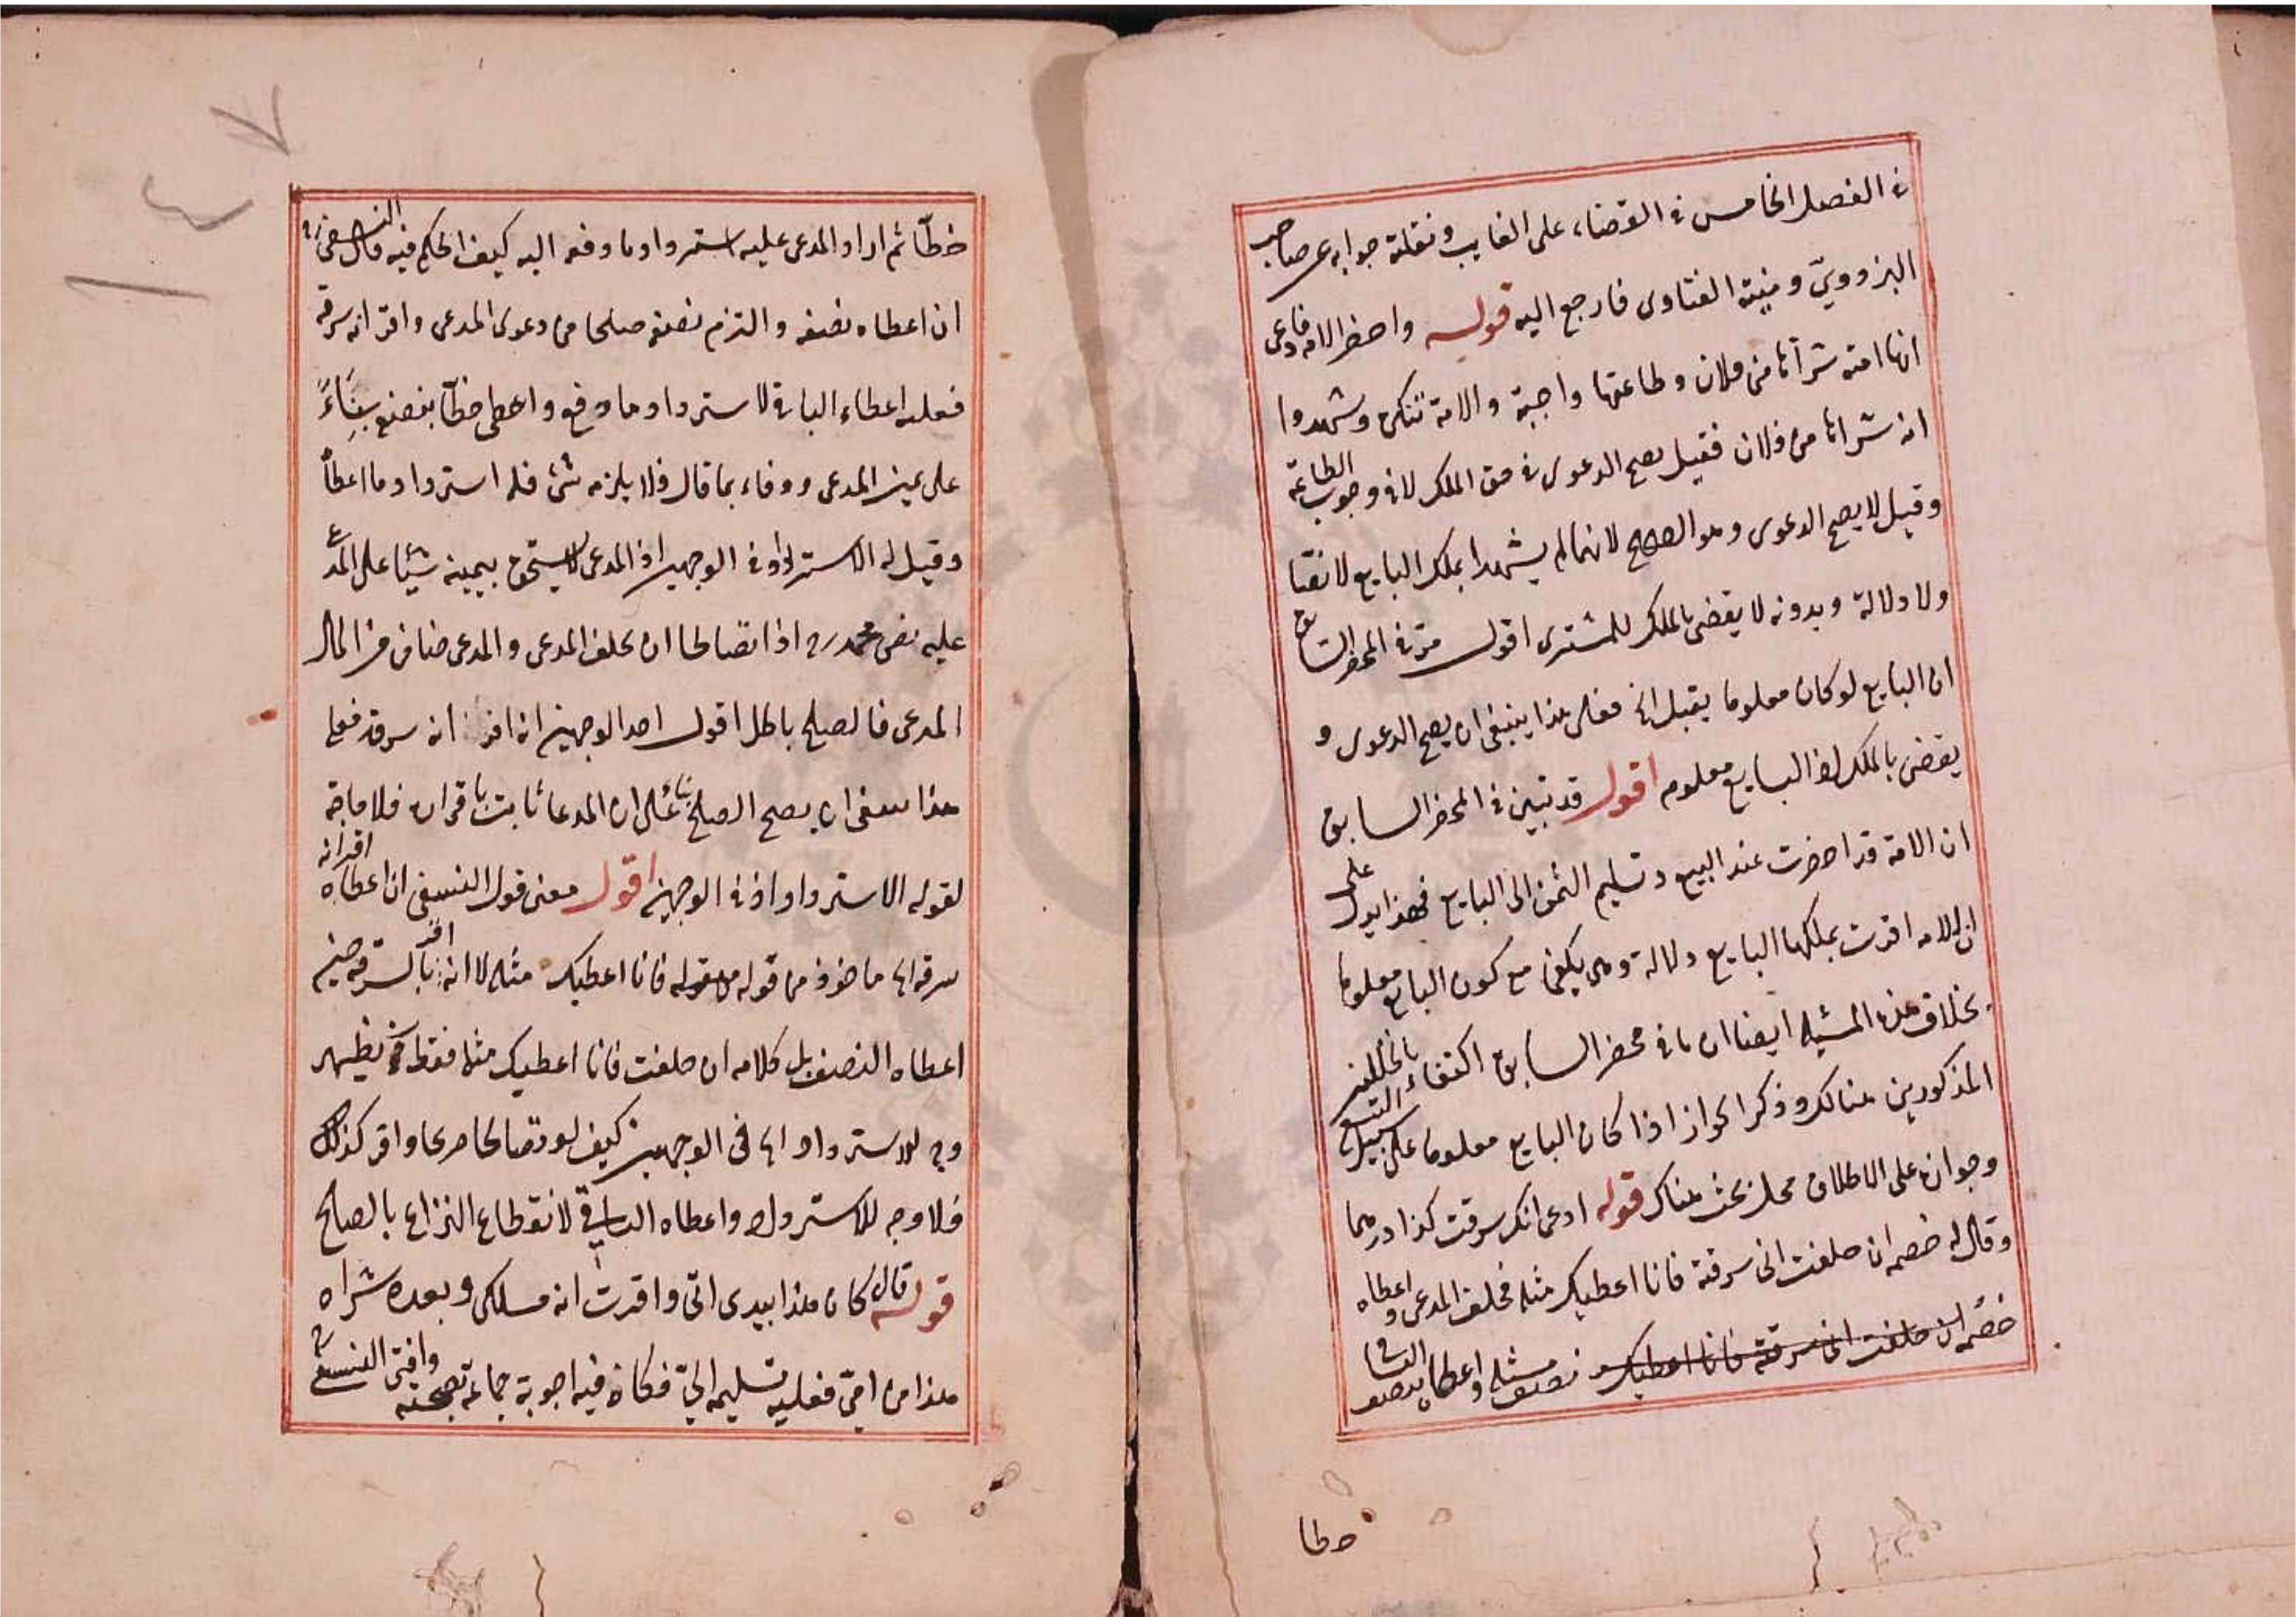 في الفصل الخامس في القضاء على الغايب ونقلته جوابه عن صاحب
البزدوي ومنية الفتاوى فارجع اليه قوله واحضر الامة فادعى
انها امته شراها من فلان وطاعتها واجبة والامة تنكر وشهدوا
انه شراها من فلان فقيل يصح الدعوى في حق الملك لا في وجوب الطاعة
وقيل لا يصح الدعوى وهو الصحيح لانهما لم يشهدا بملك البايع لا نصّا
ولا دلالة وبدونه لا يقضى بالملك للمشترى اقول مرّ في المحضر السابق
ان البايع لو كان معلوما يقبل الخ فعلى هذا ينبغى ان يصح الدعوى و
يقضى بالملك اذ البايع معلوم اقول قد تبين في المحضر السابق
ان الامة قد احضرت عند البيع وتسليم الثمن الى البايع فهذا يدل على
ان الامه اقرت بملكها البايع دلالة وهى يكفى مع كون البايع معلوما
بخلاف هذه المسئله ايضا ان ما في محضر السابق اكتفاء بالخللين
المذكورين هنالك وذكر الجواز اذا كان البايع معلوما على سبيل التبع
وجوازه على الاطلاق محل بحث هناك قوله ادعى انك سرقت كذا درهما
وقال له خصمه ان حلفت انى سرقته فانا اعطيك مثله فحلف المدعى واعطاه
خصمه ان حلفت انى سرقته فانا اعطيك نصف مثله واعطاه بنصف الباقى
خطا
خطّا ثم اراد المدعى عليه استرداد ما دفعه اليه كيف الحكم فيه قال النسفى رح
ان اعطاه نصفه والتزم نصفه صلحا من دعوى المدعى واقر انه سرقه
فعليه اعطاء الباقى لا استرداد ما دفع واعطى خطّا بنصفه بناءً
على يمين المدعى ووفاء بما قال فلا يلزمه شئ فله استرداد ما اعطاه
وقيل له الاسترداد في الوجهين اذ المدعى لا يستحق بيمينه شيئا على المدعى
عليه نص محمد رح اذا تصالحا ان يحلف المدعى والمدعى ضامن من المال
المدعى فالصلح باطل اقول احد الوجهين انه اقر انه سرقه فعلى
هذا ينبغى ان يصح الصلح بناء على ان المدعا ثابت باقراره فلا حاجة
لقوله الاسترداد اذ في الوجهين اقول معنى قول النسفى ان اعطاه اقر انه
سرقه اى ماخوذ من قوله فانا اعطيك مثله لا انه اقر بالسرقة حين
اعطاه النصف بل كلامه ان حلفت فانا اعطيك مثله فقط فح يظهر
وجه للاسترداد اى فى الوجهين كيف لو تصالحا صريحا واقر كذلك
فلا وجه للاسترداد واعطاه الباقى لانقطاع النزاع بالصلح
قوله قال كان هذا بيدى اتى واقرت انه ملكى وبعده شراه
هذا من امى فعليه تسليمه الىّ فكان فيه اجوبة جماعة بصحته وافتى النسفى رح